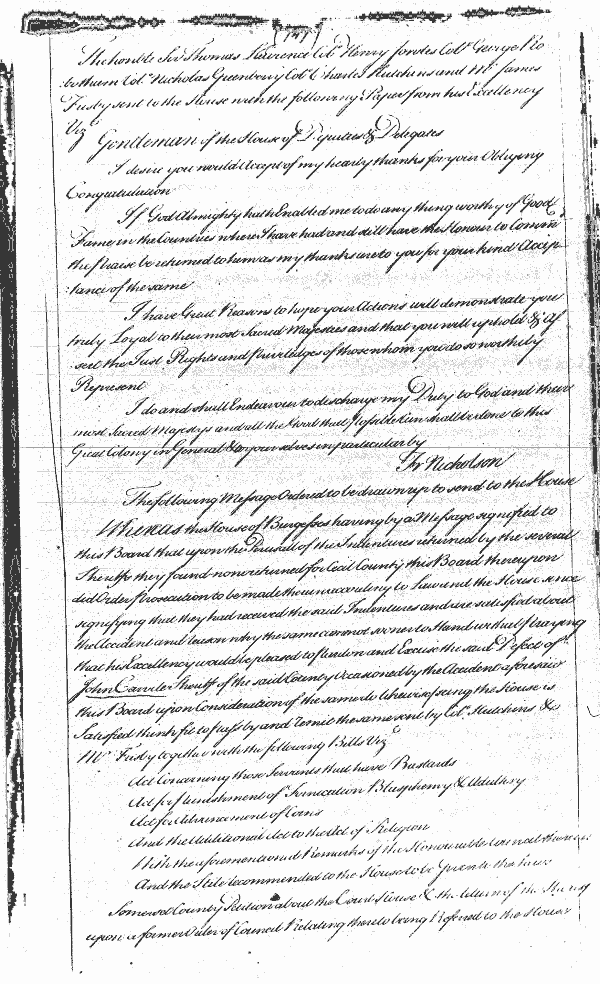 The honble Sir Thomas Lawrence Colo Henry Jowles Colo George Ro
:bothum Colo Nicholas Greenbery Colo Charles Hutchens and Mr James
Frisby sent to the House with the following Paper from his Excellency
Vizt
Gentleman of the House of Deputies & Delegates
I desire you would Accept of my hearty thanks for your Obliging
Congratulation
If God Almighty hath Enabled me to do any thing worthy of Good
Fame in the Countries where I have had and still have the Honour to Comm
the Praise be returned to him as my thanks are to you for your kind Accep
:tance of the same
I have Great Reasons to hope your Actions will demonstrate you
truly Loyal to their most Sacred Majesties and that you will uphold & As
:sert the Just Rights and Priviledges of those whom you do so worthily
Represent
I do and shall Endeavour to discharge my Duty to God and their
most Sacred Majestys and all the Good that Possible can shall be done to this
Great Colony in General & to your selves in particular by
Fr Nicholson
The following Message Ordered to be drawn up to send to the House
Whereas the House of Burgesses having by a Message signified to
this Board that upon the Perusall of the Indentures returned by the several
Sheriffs they found none returned for Cecil County this Board thereupon
did Order Prosecution to be made therein according to Law and the House since
signifying that they had received the said Indentures and are satisfied about
the Accident and reason why the same came not sooner to Hand withall praying
that his Excellency would be pleased to pardon and Excuse the said Defect of
John Carvile Sheriff of the said County Occasioned by the Accident aforesaid
this Board upon Consideration of the same do likewise seeing the House is
Satisfied think fit to pass by and remit the same sent by Colo Hutchens &
Mr Frisby together with the following Bills Vizt
Act Concerning those Servants that have Bastards
Act for Punishment of Fornication Blasphemy & Adultery
Act for Advancement of Coins
And the Additional Act to the Act of Religion
With the aforementioned Remarks of the Honourable Council thereon
And the Stile recommended to the House to be
Somerset County Petition about the Court House & the return of the
upon a former Order of Council Relating thereto being Referred to the House